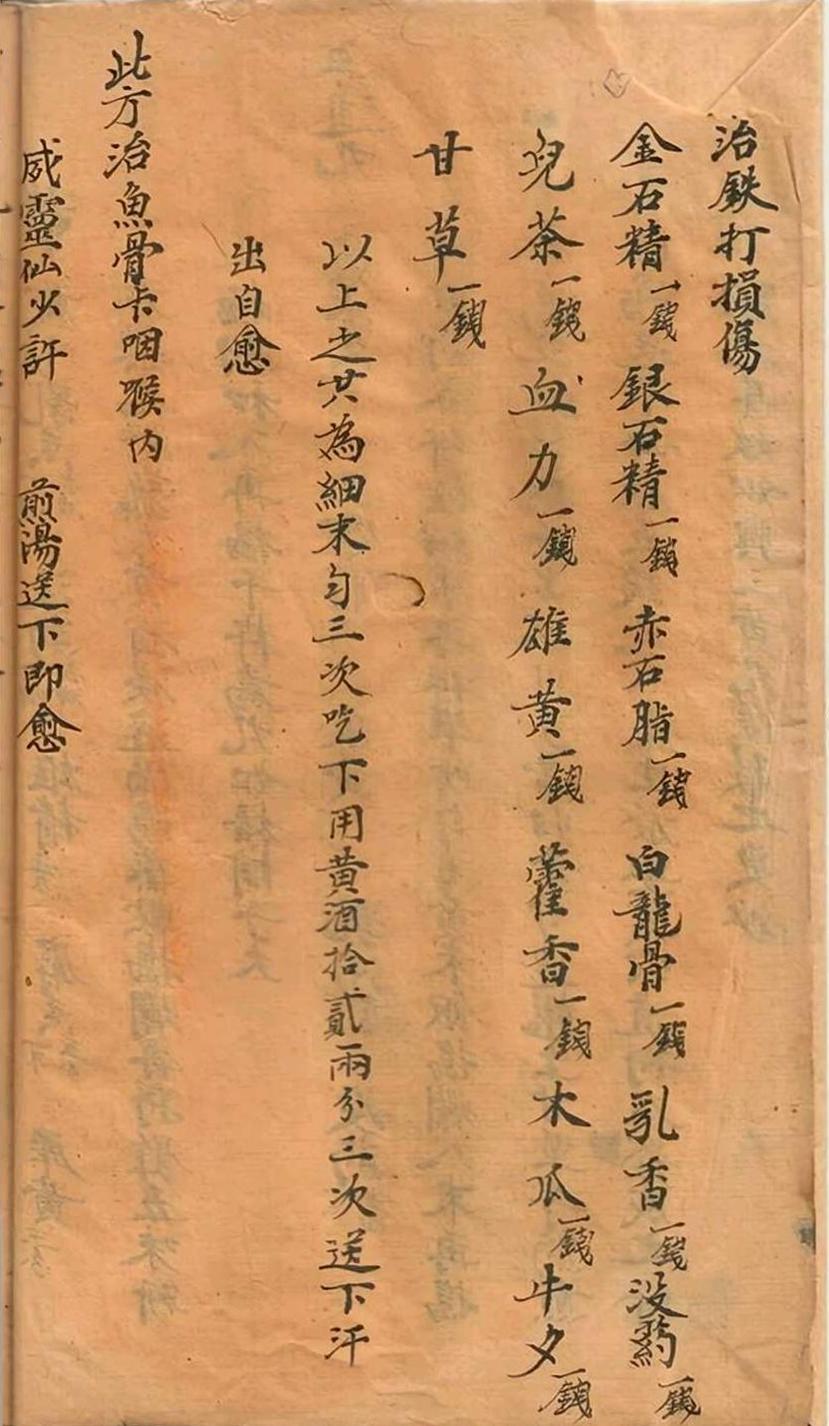 治鉄打損傷
金石精一錢 銀石精一錢 赤石脂一錢 白龍骨一錢 乳香一錢 没药一錢
兒茶一錢 血力一錢 雄黄一錢 藿香一錢 木瓜一錢 牛夕一錢
甘草一錢
以上之共為細末匀三次吃下用黄酒拾貳兩分三次送下汗
出自愈
此方治魚骨卡咽喉内
威靈仙少許 煎湯送下即愈